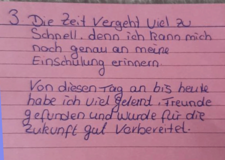 3. Die Zeit Vergeht Viel zu
Schnell. denn ich kann mich
noch genau an meine
Einschulung erinnern.
Von diesen Tag an bis heute
habe ich viel gelernt, Freunde
gefunden und wurde für die
Zukunft gut Vorbereitet.